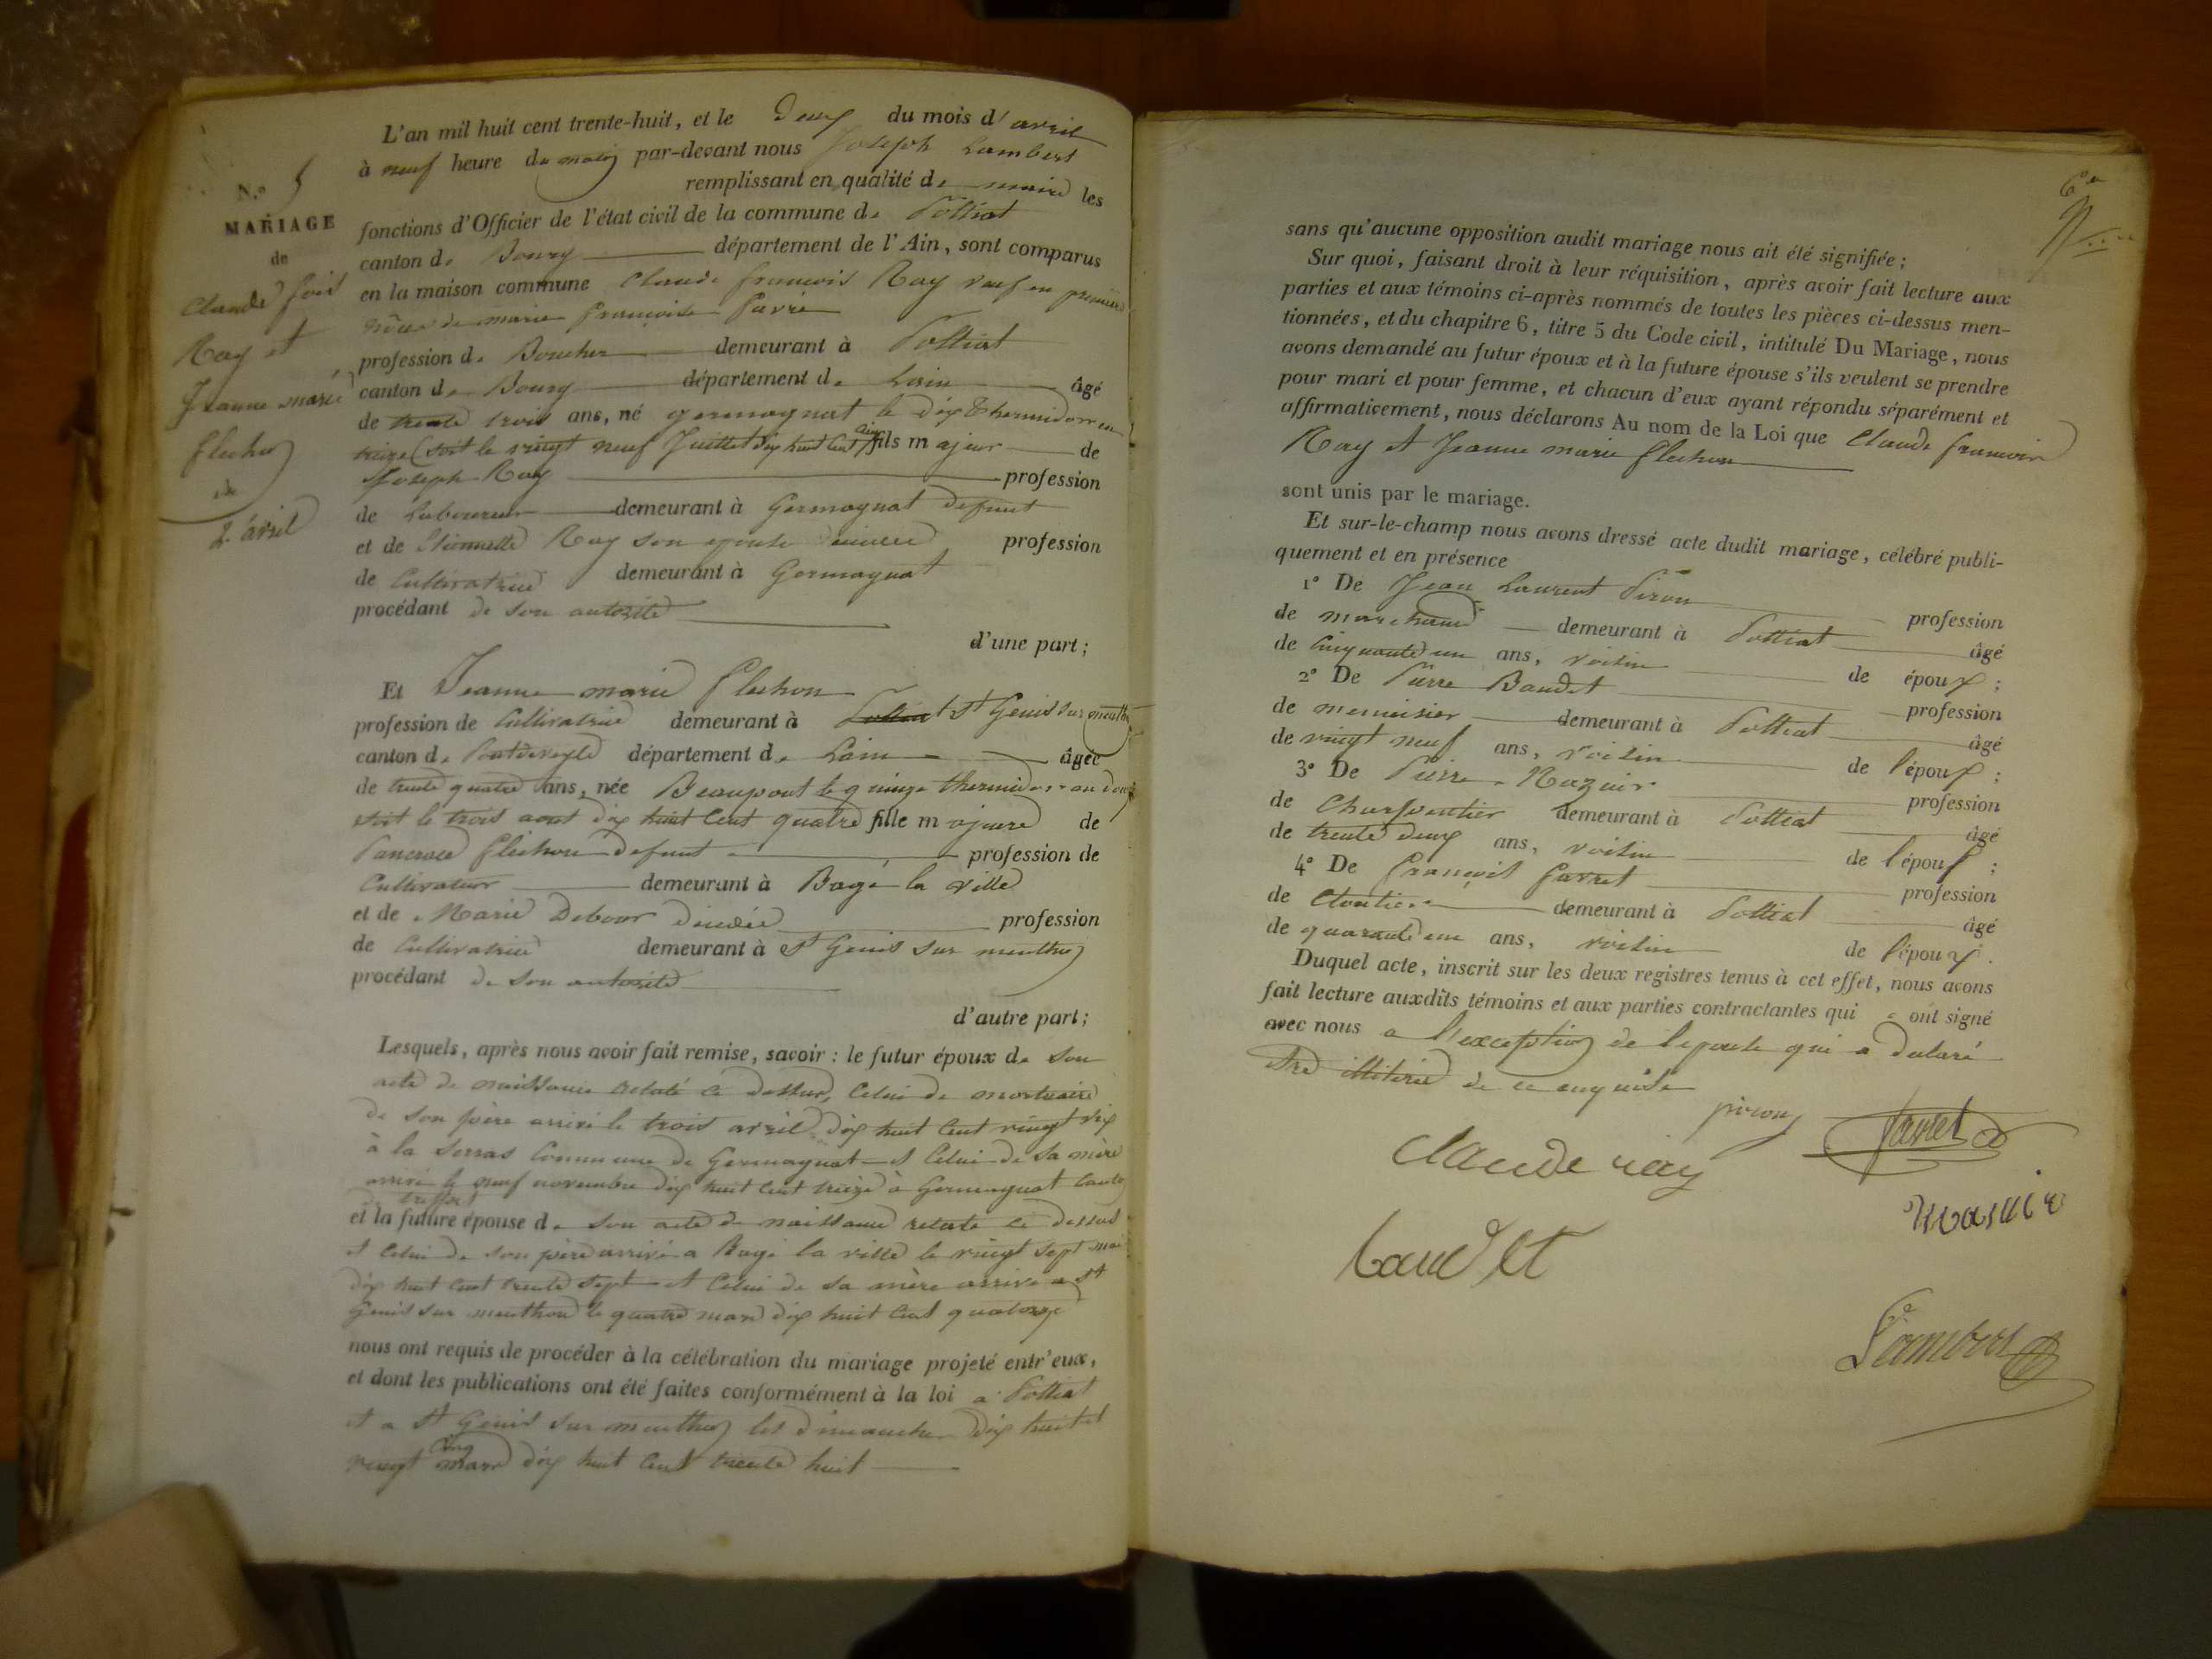 N.° 5
MARIAGE
de
Claude fois
Ray et
Jeanne marie
flechon
du
2 avril
L'an mil huit cent trente-huit, et le Deux du mois d'avril
à neuf heure du matin par-devant nous Joseph Lambert
remplissant en qualité de maire les
fonctions d'Officier de l'état civil de la commune de Polliat
canton de Bourg département de l'Ain, sont comparus
en la maison commune Claude francois Ray veuf en premiere
nôces de marie françoise favre
profession de Boucher demeurant à Polliat
canton de Bourg département de Lain âgé
de trente trois ans, né germagnat le dix Thermidor an
treize (soit le vingt neuf Juillet dix huit Cent Cinq) fils majeur de
Joseph Ray profession
de Laboureur demeurant à Germagnat Defunt
et de Etiennette Ray son epouse profession
de Cultivatrice demeurant à Germagnat
procédant de son autorité
d'une part;
Et Jeanne marie flechon
profession de Cultivatrice demeurant à St Genis sur menthon
canton de Pontdeveyle département de Lain âgée
de trente quatre ans, née Beaupont le quinze thermidor an douze
soit le trois aout dix huit Cent quatre fille majeure de
Pancrace flechon defunt profession de
Cultivateur demeurant à Bagé la ville
et de Marie Debour profession
de Cultivatrice demeurant à St Genis sur menthon
procédant de son autorité
d'autre part;
Lesquels, après nous avoir fait remise, savoir : le futur époux de son
acte de naissance relaté ce dessus, Celui de mortuaire
de son père arrivé le trois avril dix huit Cent vingt six
à la Serras Commune de Germagnat et Celui de sa mère
arrivé le neuf novembre dix huit Cent treize à Germagnat Canton
de treffort
et la future épouse de son acte de naissance relaté ce dessus
et Celui de son père arrivé a Bagé la ville le vingt sept mai
dix huit Cent trente sept et Celui de sa mère arrivé a St
Genis sur menthon le quatre mars dix huit Cent quatorze
nous ont requis de procéder à la célébration du mariage projeté entr'eux,
et dont les publications ont été faites conformément à la loi a Polliat
et a St Genis sur menthon les dimanches dix huit et
vingt Cinq mars dix huit Cent trente huit
6e
sans qu'aucune opposition audit mariage nous ait été signifiée;
Sur quoi, faisant droit à leur réquisition, après avoir fait lecture aux
parties et aux témoins ci-après nommés de toutes les pièces ci-dessus men-
tionnées, et du chapitre 6, titre 5 du Code civil, intitulé Du Mariage, nous
avons demandé au futur époux et à la future épouse s'ils veulent se prendre
pour mari et pour femme, et chacun d'eux ayant répondu séparément et
affirmativement, nous déclarons Au nom de la Loi que Claude francois
Ray et Jeanne marie flechon
sont unis par le mariage.
Et sur-le-champ nous avons dressé acte dudit mariage, célébré publi-
quement et en présence
1° De Jean Laurent Piron profession
de marchand demeurant à Polliat âgé
de Cinquante un ans, voisin de époux ;
2° De Pierre Baudet profession
de menuisier demeurant à Polliat âgé
de vingt neuf ans, voisin de l'époux ;
3° De Pierre Mazuir profession
de Charpentier demeurant à Polliat âgé
de trente deux ans, voisin de l'époux ;
4° De françois favret profession
de Cloutier demeurant à Polliat âgé
de quarante un ans, voisin de l'époux.
Duquel acte, inscrit sur les deux registres tenus à cet effet, nous avons
fait lecture auxdits témoins et aux parties contractantes qui ont signé
avec nous a l'exception de lepouse qui a declaré
être illiterée de ce enquise
piron favret
Claude ray
Baudet
Lambert